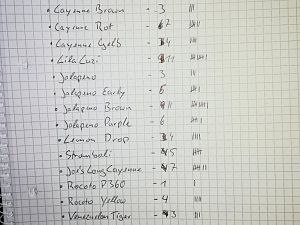 • Cayenne Brown - 3 III
• Cayenne Rot - 2
• Cayenne Gelb - 4 IIII
• Lila Luzi - 11
• Jalapeno - 3 III
• Jalapeno Early - 5
• Jalapeno Brown - 11
• Jalapeno Purple - 6
• Lemon Drop - 4 IIII
• Stromboli - 5
• Joe's Long Cayenne - 7
• Rocoto P360 - 1 I
• Rocoto Yellow - 4 IIII
• Venezuelan Tiger - 3 III